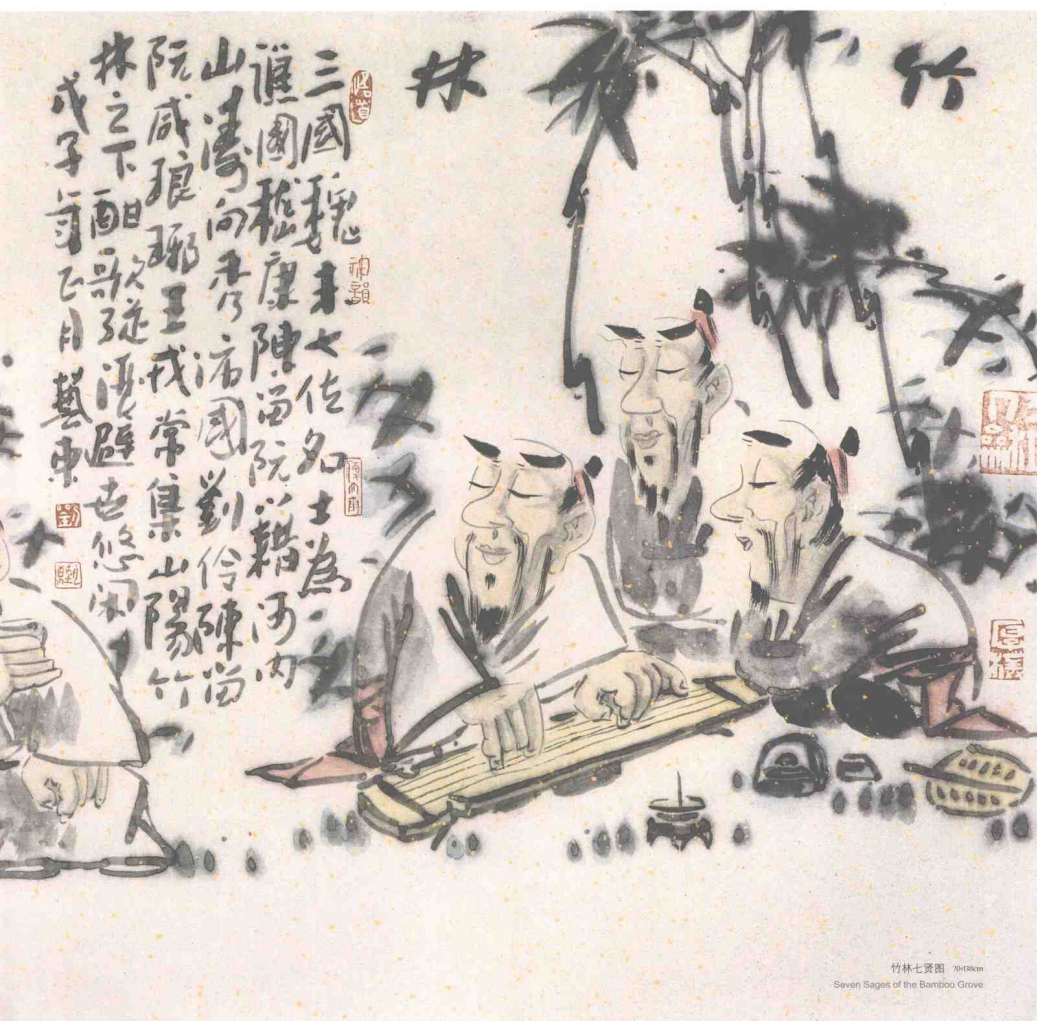 竹
林
三國魏末七位名士為
譙國嵇康陳留阮籍河內
山濤向秀沛國劉伶陳留
阮咸琅琊王戎常集山陽竹
林之下酣歌縱酒避世悠閑
戊子年正月藝東
悟道
神韻
劉
竹林七贤图 70×138cm
Seven Sages of the Bamboo Grove